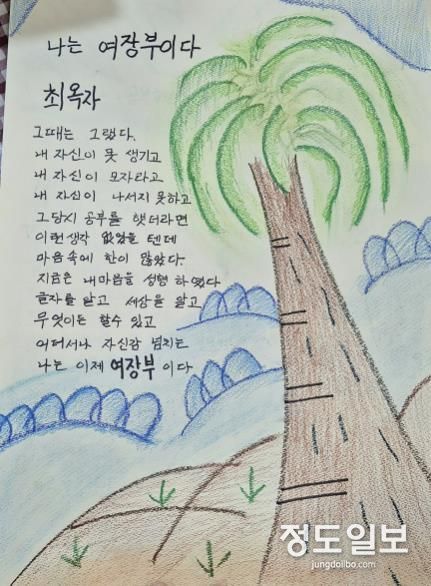 나는 여장부이다
최옥자
그때는 그랬다.
내 자신이 못 생기고
내 자신이 모자라고
내 자신이 나서지 못하고
그당시 공부를 햇더라면
이런생각 없었을 텐데
마음속에 한이 많았다.
지금은 내마음을 성형 하였다
글자를 알고 세상을 알고
무엇이든 할수 있고
어더서나 자신감 넘치는
나는 이제 여장부 이다
정도일보
jungdoilbo.com